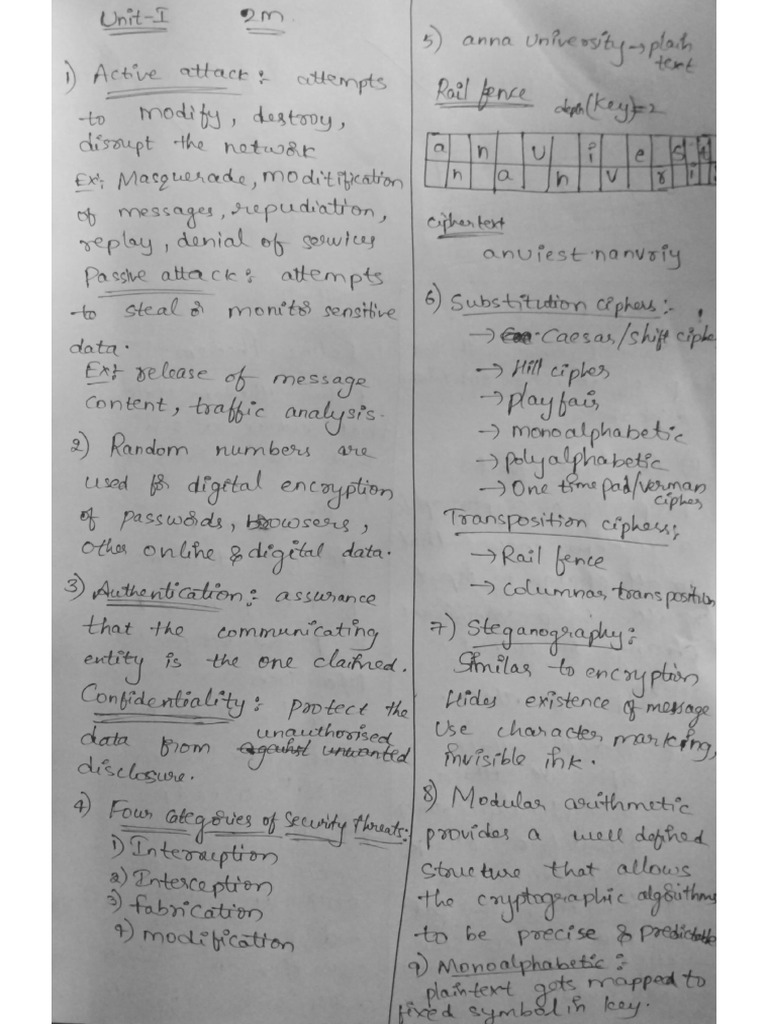 Unit-I 2M
1) Active attack :- attempts
to modify, destroy,
disrupt the network
Ex:- Masquerade, moditification
of messages, repudiation,
replay, denial of services
Passive attack :- attempts
to steal or monitor sensitive
data.
Ex:- release of message
content, traffic analysis.
2) Random numbers are
used for digital encryption
of passwords, browsers,
other online & digital data.
3) Authentication :- assurance
that the communicating
entity is the one claimed.
Confidentiality :- protect the
unauthorised
data from against unwanted
disclosure.
4) Four categories of security threats:-
1) Interruption
2) Interception
3) fabrication
4) modification
5) anna university → plain
text
Rail fence depth(key)=2
a n u i e s t
n a n v r i
ciphertext
anuiest nanvriy
6) Substitution ciphers :-
→ Caesar/shift ciphe
→ Hill cipher
→ playfair
→ monoalphabetic
→ polyalphabetic
→ One time pad/verman
cipher
Transposition ciphers :-
→ Rail fence
→ columnar transposition
7) Steganography :-
Similar to encryption
Hides existence of message
Use character marking,
invisible ink.
8) Modular arithmetic
provides a well defined
structure that allows
the cryptographic algorithms
to be precise & predictable
9) Monoalphabetic :-
plaintext gets mapped to
fixed symbol in key.